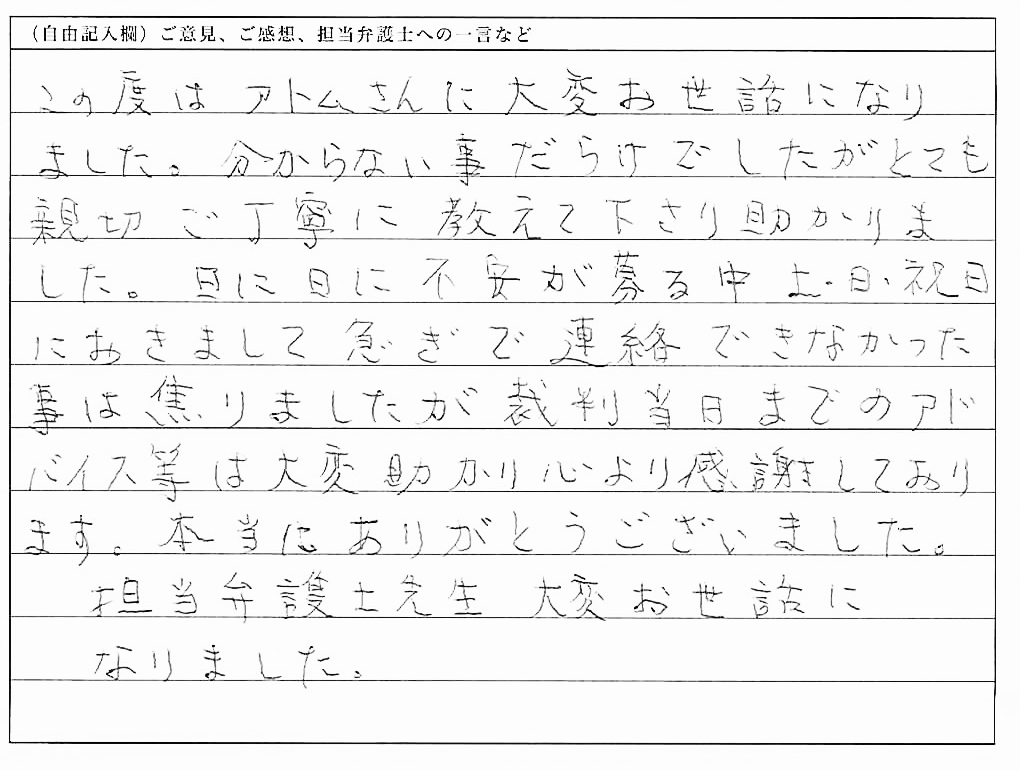 （自由記入欄）ご意見、ご感想、担当弁護士への一言など
この度は アトムさんに大変お世話になり
ました。分からない事だらけでしたがとても
親切ご丁寧に教えて下さり助かりま
した。日に日に不安が募る中土・日・祝日
におきまして急ぎで連絡できなかった
事は焦りましたが裁判当日までのアド
バイス等は大変助かり心より感謝しており
ます。本当にありがとうございました。
担当弁護士先生 大変お世話に
なりました。